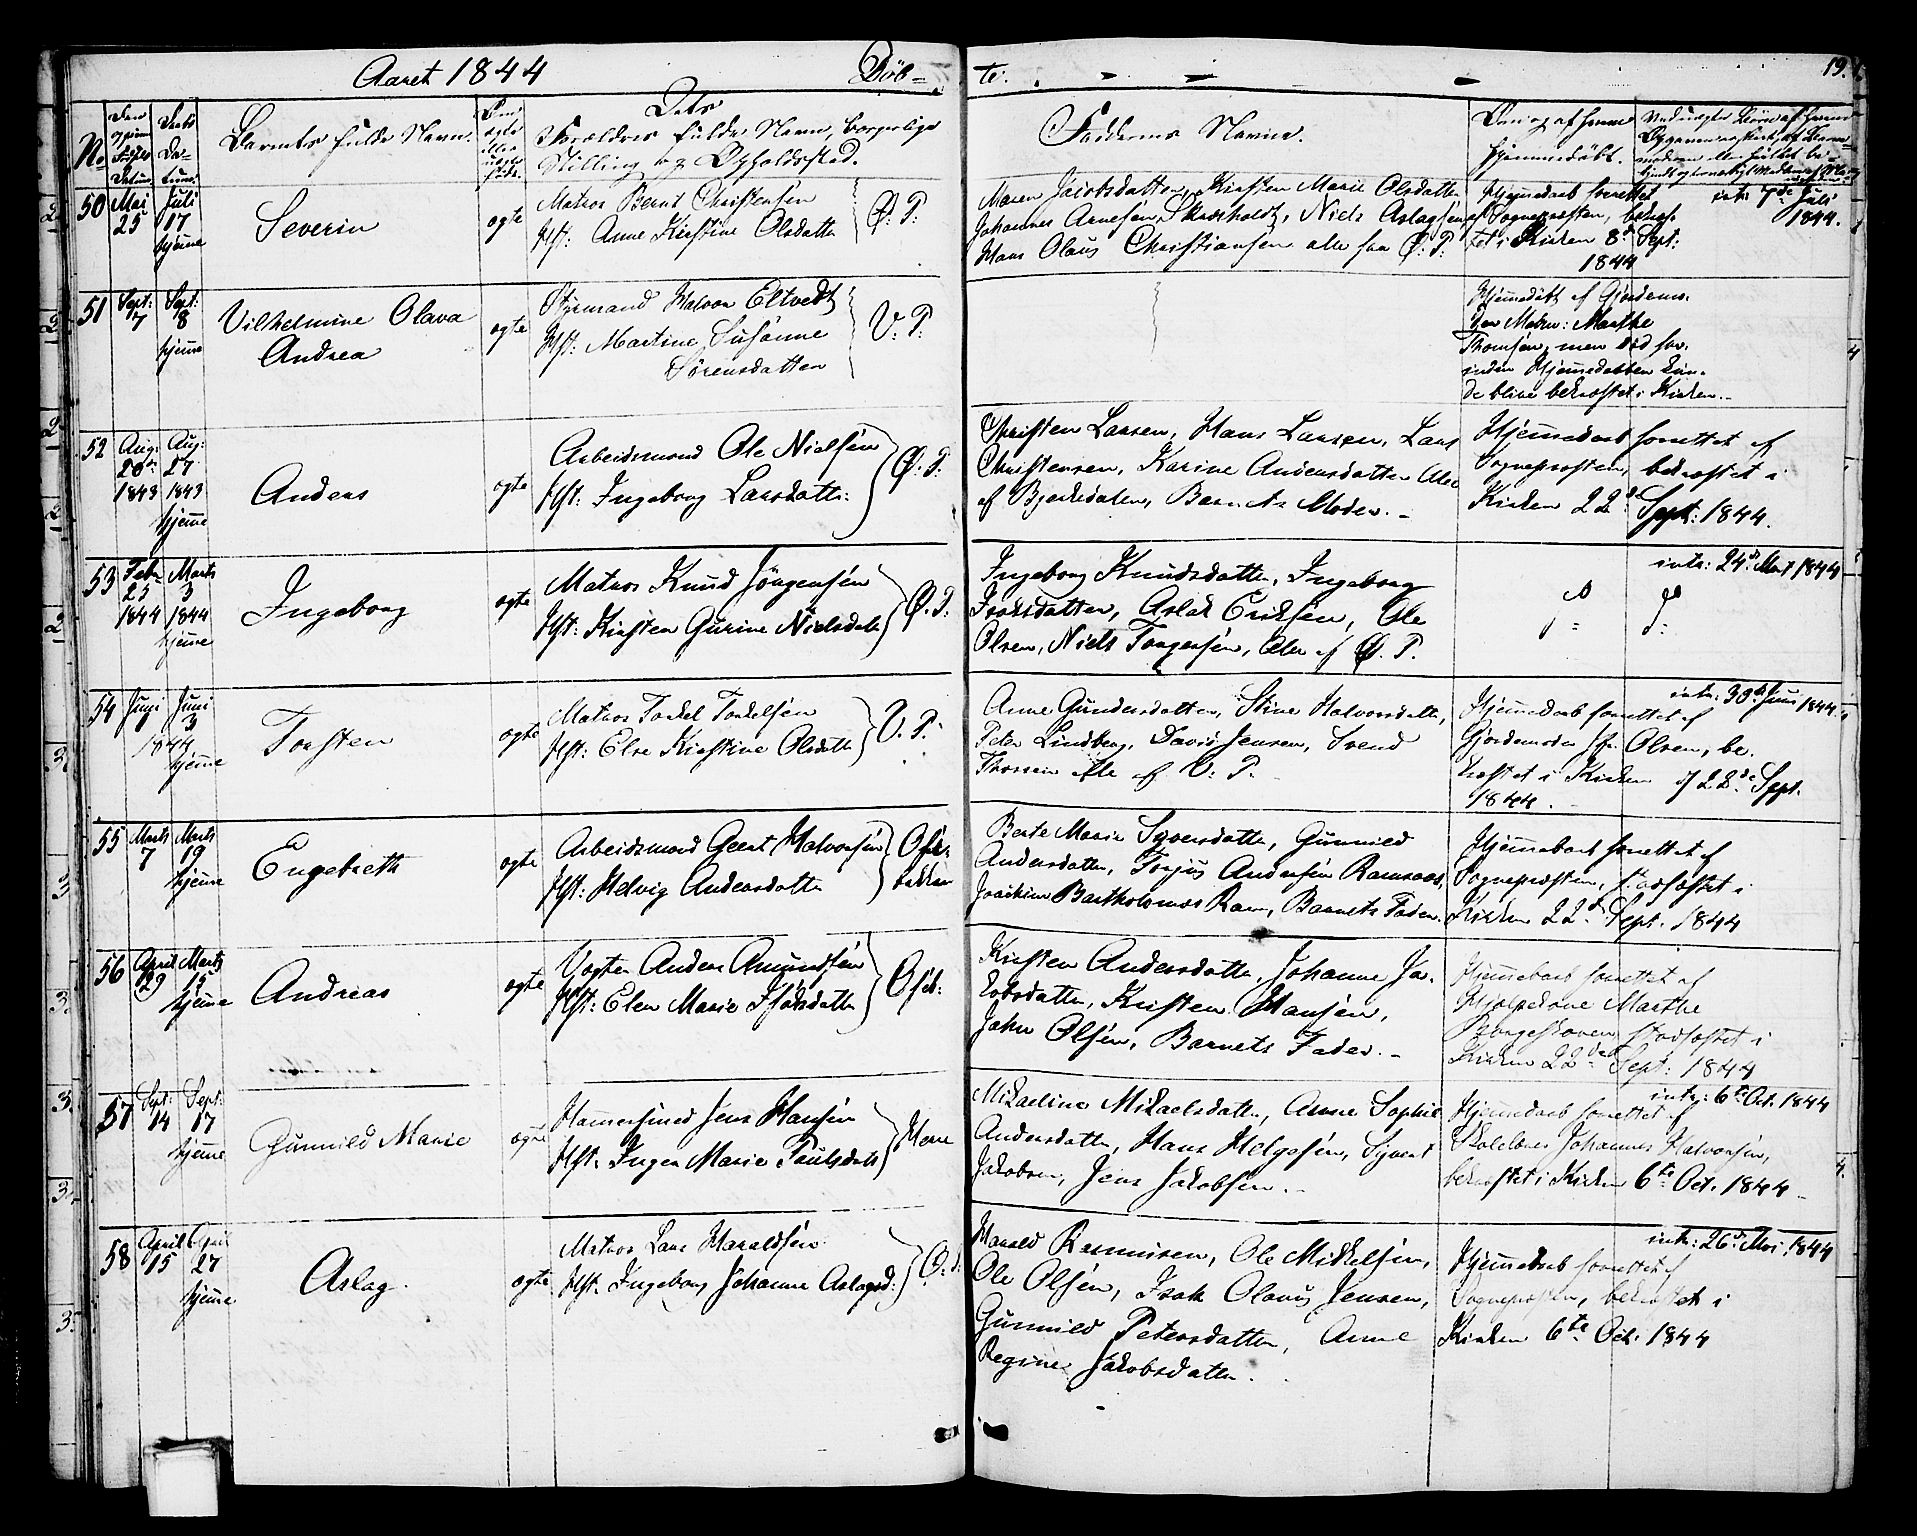 Aaret 1844 Døb-
te.
19.
No
Barnets fulde Navn.
Dets
Forældres fulde Navn, borgerlige
Stilling og Opholdssted.
Faddernes Navne.
Om og af hvem
hjemmedøbt.
50 Mai Juli
25 17
hjemme
Severin
ægte
Matros Bernt Christensen
Hst: Anne Kirstine Olsdatter
Ø: P:
Maren Jacobsdatter, Kirsten Marie Olsdatter
Johannes Arnesen Skoeholdt, Niels Aslagsen
Hans Olaus Christiansen alle fra Ø: P:
Hjemmedaab forrettet
af Sogneprœsten, bekræf-
tet i Kirken 8de Sept:
1844
intr: 7de Juli
1844.
51 Sept: Sept:
7 8
hjemme
Vilhelmine Olava
Andrea
ægte
Styrmand Halvor Eltvedt
Hst: Martine Susanne
Sørensdatter
V: P:
Hjemmedøbt af Gjordemo-
der Madm: Marthe
Thomsen, men død for-
inden Hjemmedaaben kun-
de blive bekræftet i Kirken.-
52 Aug: Aug:
20de 27
1843 1843
hjemme
Anders
ægte
Arbeidsmand Ole Nielsen
Hst: Ingeborg Larsdatter:
Ø: P:
Christen Larsen, Hans Larsen, Lars
Christensen, Karine Andersdatter Alle
af Bjerkedalen, Barnets Moder.-
Hjemmedaab forrettet af
Sogneprœsten, bekræftet i
Kirken 22de Sept: 1844.
53 Feb: Marts
23 3
1844 1844
hjemme
Ingeborg
ægte
Matros Knud Jörgensen
Hst: Kirsten Gurine Nielsdatt
Ø. P.
Ingeborg Knudsdatter, Ingeborg
Isaksdatter, Aslak Eriksen, Ole
Olsen, Niels Torgersen, Alle af Ø. P.
intr: 24de Mar 1844
54 Juni Juni
1 3
1844
hjemme
Torsten
ægte
Matros Torkel Torkelsen
Hst: Else Kirstine Olsdatter
V: P:
Anne Gundersdatter, Stine Halvorsdatter,
Peter Lindberg, David Jensen, Svend
Thorsen Alle af V: P.
Hjemmedaab forrettet af
Gjordemoder Olsen, be-
kræftet i Kirken d 22de Sept.
1844.
intr: 30de Juni 1844.
55 Marts Marts
7 19
hjemme
Engebreth
ægte
Arbeidsmand Geert Halvorsen
Hst: Helvig Andersdatter
Berte Marie Syversdatter, Gunnild
Andersdatter, Torjus Andersen Ramsaas,
Joachim Bartholomæs Ram, Barnets Fader.
Hjemmedaab forrettet af
Sogneprœsten, stadfæstet i
Kirken 22de Sept. 1844
56 April Marts
29 15
hjemme
Andreas
ægte
Vogter Anders Amundsen
Hst: Elen Marie Isaksdatter
Kirsten Andersdatter, Johanne Ja-
kobsdatter, Kristen Hansen,
John Olsen, Barnets Fader.-
Hjemmedaab forrettet af
Hjelpekone Marthe
stadfæstet i
Kirken 22de Sept: 1844
57 Sept: Sept:
14 17
hjemme
Gunnild Marie
ægte
Hammersmed Jens Hansen
Hst. Inger Marie Paulsdatt
Mikaeline Mikaelsdatter, Anne Sophie
Andersdatter, Hans Helgesen, Syvert
Jakobsen, Jens Jakobsen.-
Hjemmedaab forrettet af
Skolelærer Johannes Halvorsen,
bekræftet i Kirken 6te Oct. 1844
intr: 6te Oct. 1844
58 April April
15 27
hjemme
Aslag
ægte
Matros Lars Haraldsen
Hst. Ingeborg Johanne Aslagsd:
Harald Rasmusen, Ole Mikkelsen,
Ole Olsen, Isak Olaus Jensen,
Gunnild Petersdatter, Anne
Regine Jakobsdatter.
Hjemmedaab forrettet af
Sogneprœsten, bekræftet i
Kirken 6te Oct. 1844
intr: 26de Mai 1844